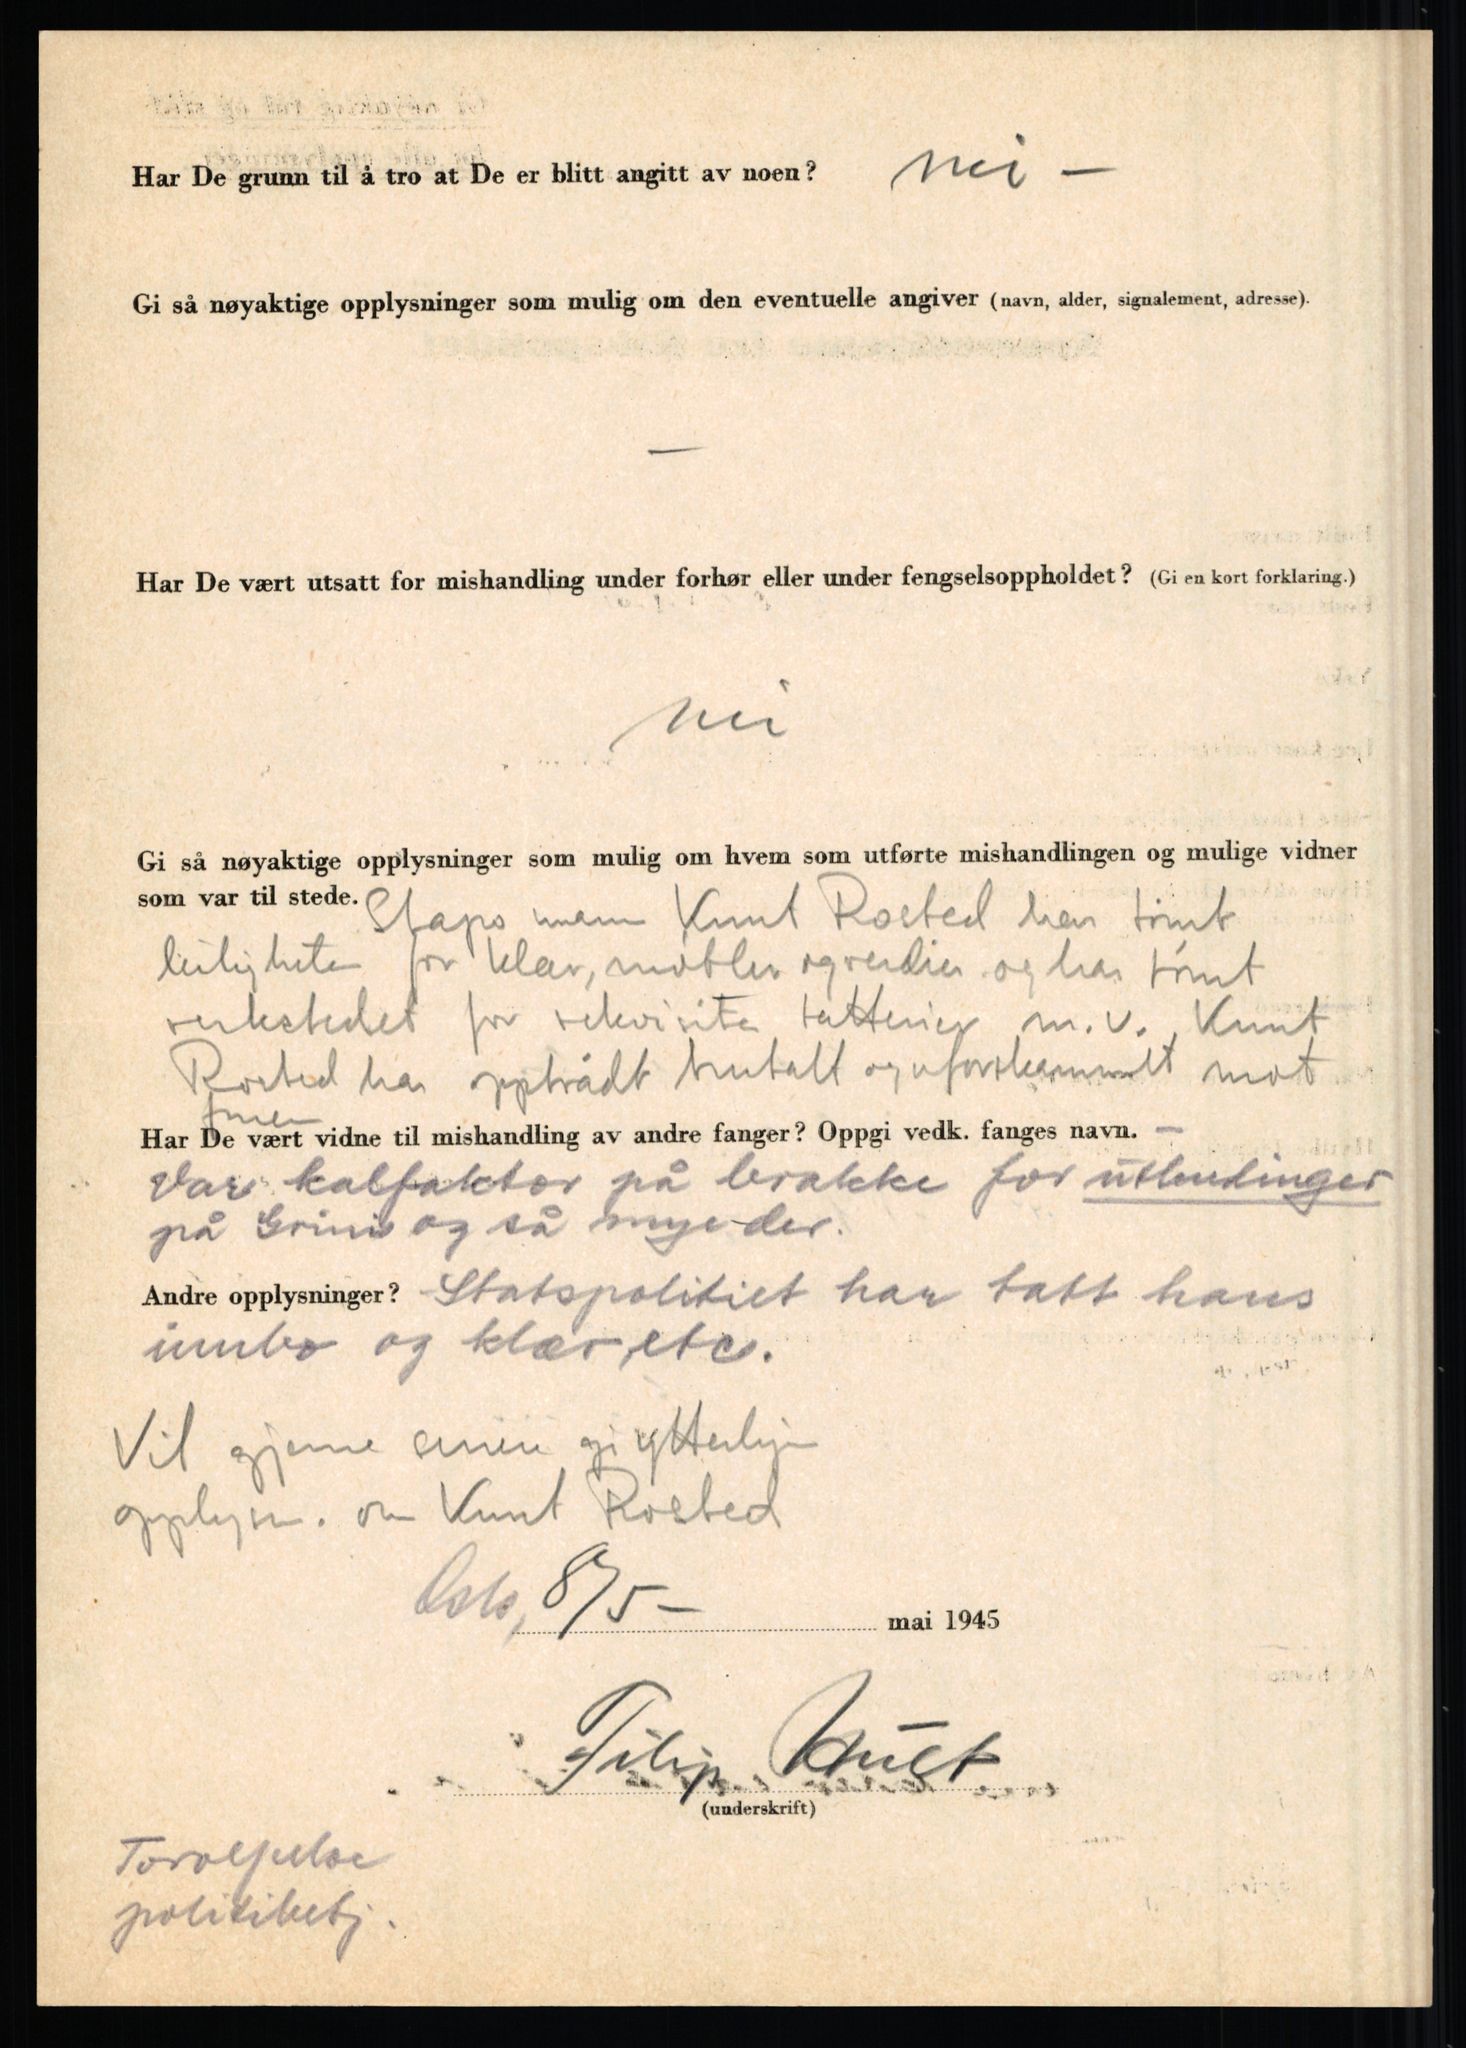 Har De grunn til å tro at De er blitt angitt av noen? nei —
Gi så nøyaktige opplysninger som mulig om den eventuelle angiver (navn, alder, signalement, adresse).
—
Har De vært utsatt for mishandling under forhør eller under fengselsoppholdet? (Gi en kort forklaring.)
nei
Gi så nøyaktige opplysninger som mulig om hvem som utførte mishandlingen og mulige vidner
som var til stede. Stapo mann Knut Rosted har tømt
leiligheten for klær, møbler og verdier og har tømt
verkstedet for rekvisita batterier m.v. Knut
Rosted har opptrådt brutalt og uforskammet mot
Har De vært vidne til mishandling av andre fanger? Oppgi vedk. fanges navn. —
Var kalfaktor på brakke for utlendinger
på Grini og så mye der.
Andre opplysninger? Statspolitiet har tatt hans
innbo og klær, etc.
Vil gjerne senere gi ytterligere
opplysn. om Knut Rosted
Oslo, 8/5 — mai 1945
Filip
(underskrift)
politibetj.